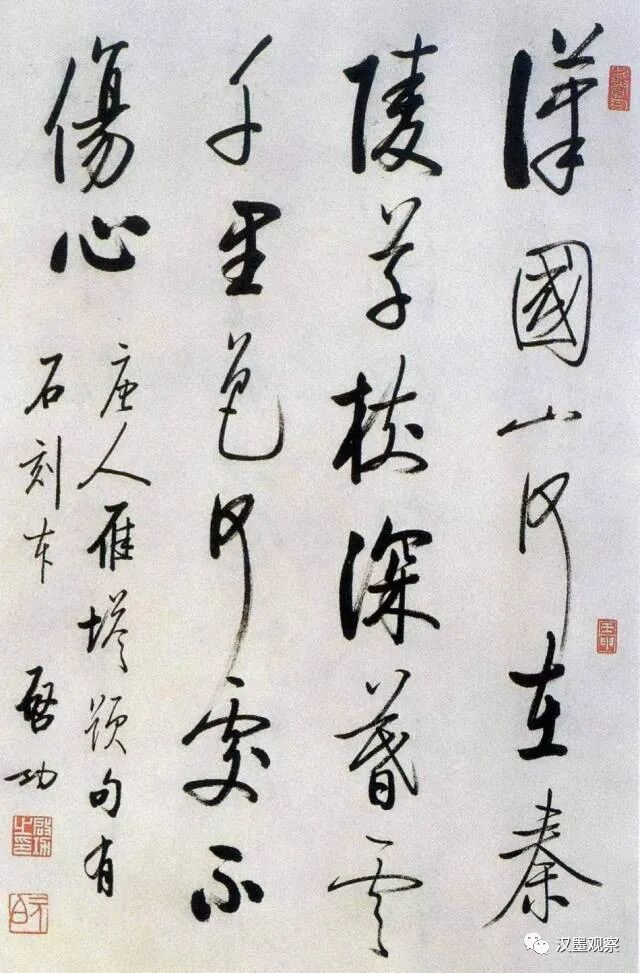 漢國山河在秦
陵草樹深暮雲
千里色何處不
傷心
唐人雁塔題句有
石刻本 啓功
啟功之印
元白
汉墨观察